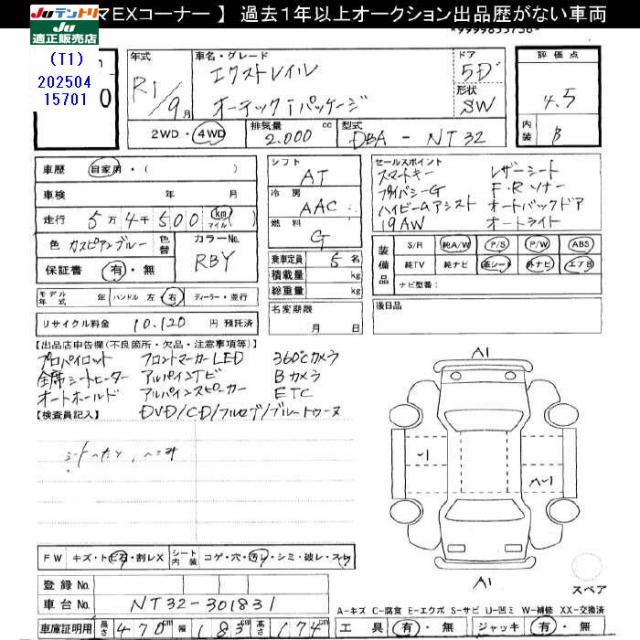 Juテントリ
Ju
適正販売店
マEXコーナー 】 過去1年以上オークション出品歴がない車両
(T1)
202504
15701
0
年式
R1/9月
車名・グレード
エクストレイル
オーテックiパッケージ
ドア
5D
形状
SW
評価点
4.5
内装
B
2WD・4WD
排気量
2.000 cc
型式
DBA - NT32
車歴 自家用・( )
車検 年 月
走行 5万4千500 (km マイル)
色 カスピアンブルー
色替
カラーNo.
RBY
保証書 有・無
シフト
AT
冷房
AAC
燃料
G
乗車定員 5 名
積載量 kg
総重量 kg
セールスポイント
スマートキー レザーシート
プライバシーG F・Rソナー
ハイビームアシスト オートバックドア
19AW オートライト
装備品
S/R 純A/W P/S P/W ABS
純TV 純ナビ 革シート 外ナビ エアB
ナビ型番:
モデル年式 年 ハンドル 左・右 ディーラー・並行
名変期限
月 日
後日品
リサイクル料金 10.120 円 預託済
【出品店申告欄(不良箇所・欠品・注意事項等)】
プロパイロット フロントマーカーLED 360°カメラ
全席シートヒーター アルパインナビ Bカメラ
オートホールド アルパインスピーカー ETC
DVD/CD/フルセグ/ブルートゥース
【検査員記入】
A1
A-1
A1
スペア
FW キズ・トビ石・割レX
シート内装 コゲ・穴・汚レ・シミ・破レ・スレ
登録No.
車台No. NT32-301831
車庫証明用 長さ 470 cm 幅 183 cm 高さ 174 cm
A-キズ C-腐食 E-エクボ S-サビ U-凹ミ W-補修 XX-交換済
工具 有・無 ジャッキ 有・無